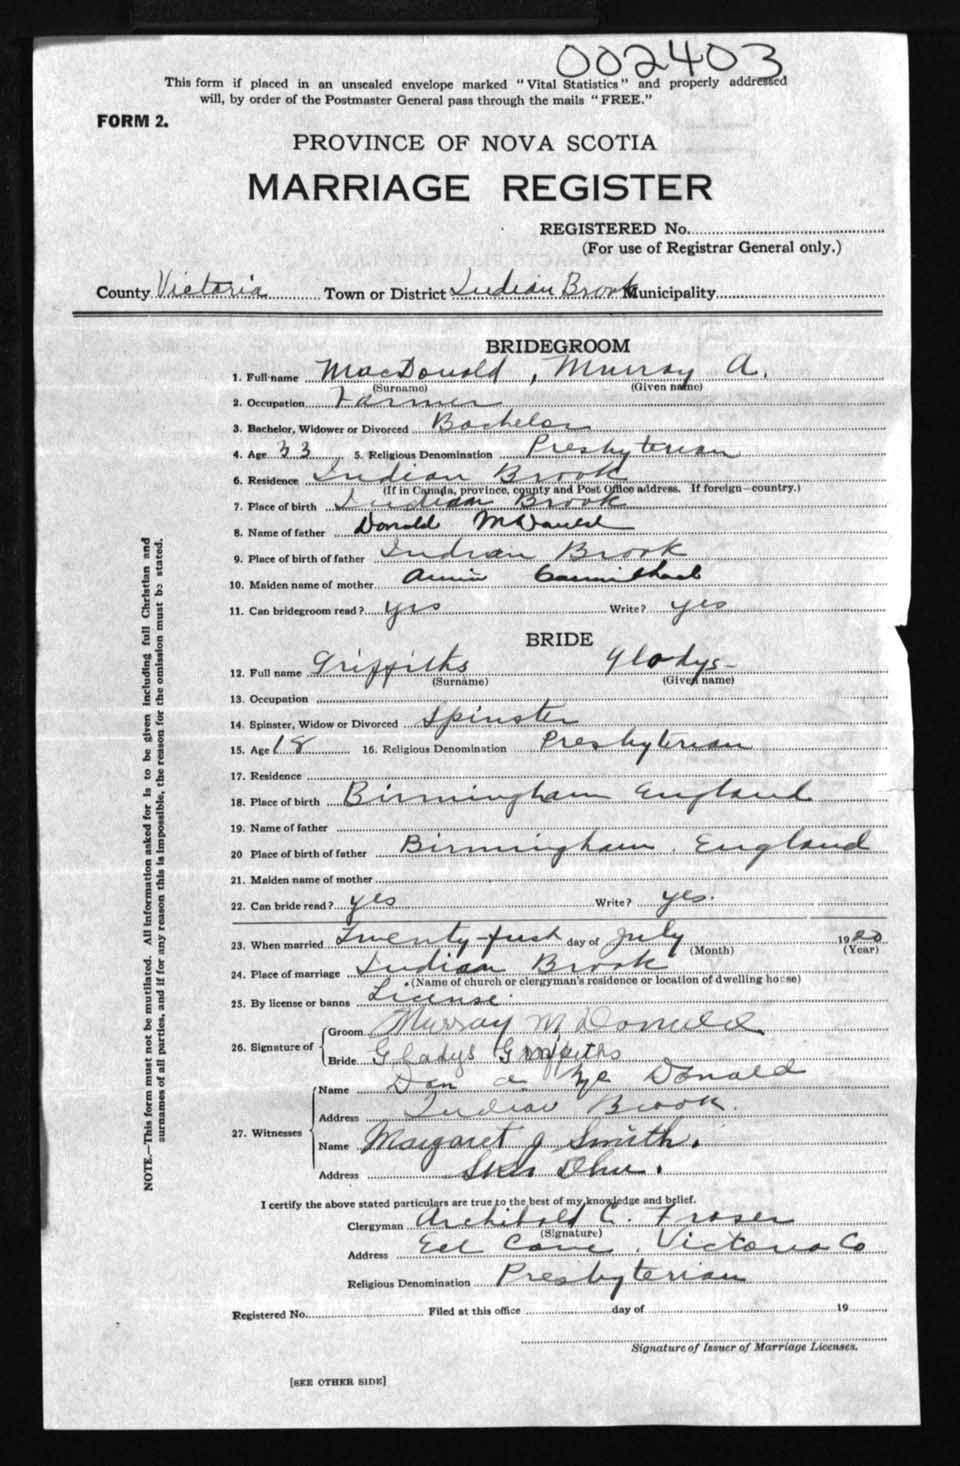 002403
This form if placed in an unsealed envelope marked "Vital Statistics" and properly addressed
will, by order of the Postmaster General pass through the mails "FREE."
FORM 2.
PROVINCE OF NOVA SCOTIA
MARRIAGE REGISTER
REGISTERED No.
(For use of Registrar General only.)
County Victoria Town or District Indian Brook Municipality
BRIDEGROOM
1. Full name MacDonald, Murray A.
(Surname) (Given name)
2. Occupation Farmer
3. Bachelor, Widower or Divorced Bachelor
4. Age 33 5. Religious Denomination Presbyterian
6. Residence Indian Brook
(If in Canada, province, county and Post Office address. If foreign—country.)
7. Place of birth Indian Brook
8. Name of father Donald McDonald
9. Place of birth of father Indian Brook
10. Maiden name of mother Annie Carmichael
11. Can bridegroom read? yes Write? yes
BRIDE
12. Full name Griffiths Gladys
(Surname) (Given name)
13. Occupation
14. Spinster, Widow or Divorced Spinster
15. Age 18 16. Religious Denomination Presbyterian
17. Residence
18. Place of birth Birmingham England
19. Name of father
20 Place of birth of father Birmingham. England
21. Maiden name of mother
22. Can bride read? yes Write? yes.
23. When married Twenty-first day of July 1920
(Month) (Year)
24. Place of marriage Indian Brook
(Name of church or clergyman's residence or location of dwelling house)
25. By license or banns License.
26. Signature of
Groom Murray McDonald
Bride Gladys Griffiths
27. Witnesses
Name Dan A McDonald
Address Indian Brook.
Name Margaret J Smith.
Address
I certify the above stated particulars are true to the best of my knowledge and belief.
Clergyman Archibald C. Fraser
(Signature)
Address Eel Cove, Victoria Co
Religious Denomination Presbyterian
Registered No. Filed at this office day of 19
Signature of Issuer of Marriage Licenses.
[SEE OTHER SIDE]
NOTE.—This form must not be mutilated. All information asked for is to be given including full Christian and
surnames of all parties, and if for any reason this is impossible, the reason for the omission must be stated.